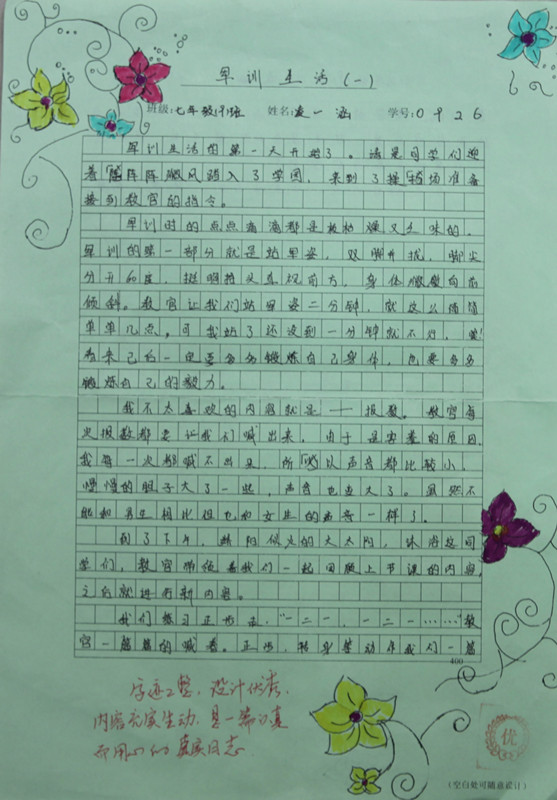 军训生活(一)
班级:七年级(9)班 姓名:凌一涵 学号:0926
军训生活的第一天开始了。诸多同学们迎
着阵阵顺风踏入了学园,来到了操场准备
接到教官的指令。
军训时的点点滴滴都是枯燥又乏味的,
军训的第一部分就是站军姿,双脚并拢,脚尖
分开60度,挺胸抬头直视前方,身体微微向前
倾斜。教官让我们站军姿二分钟,就这么简简
单单几点,可我站了还没到一分钟就不行,
看来己的一定要多多锻炼自己身体,也要多多
锻炼自己的毅力。
我不太喜欢的内容就是——报数。教官每
次报数都要让我们喊出来,由于是害羞的原因,
我每一次都喊不出且,所以声音都比较小,
慢慢的胆子大了一些,声音也变大了。虽然不
能和男生相比但也和女生的声音一样了。
到了下午,骄阳似火的大太阳,沐浴这同
学们,教官带领着我们一起回顾上节课的内容,
之后就进行新内容。
我们练习正步走,“一二一,一二一……”教
官一篇篇的喊着。正步,转身等动作我们一篇
400
字迹工整,设计优秀,
内容充实生动,是一篇认真
而用心的真实日志
优
(空白处可随意设计)